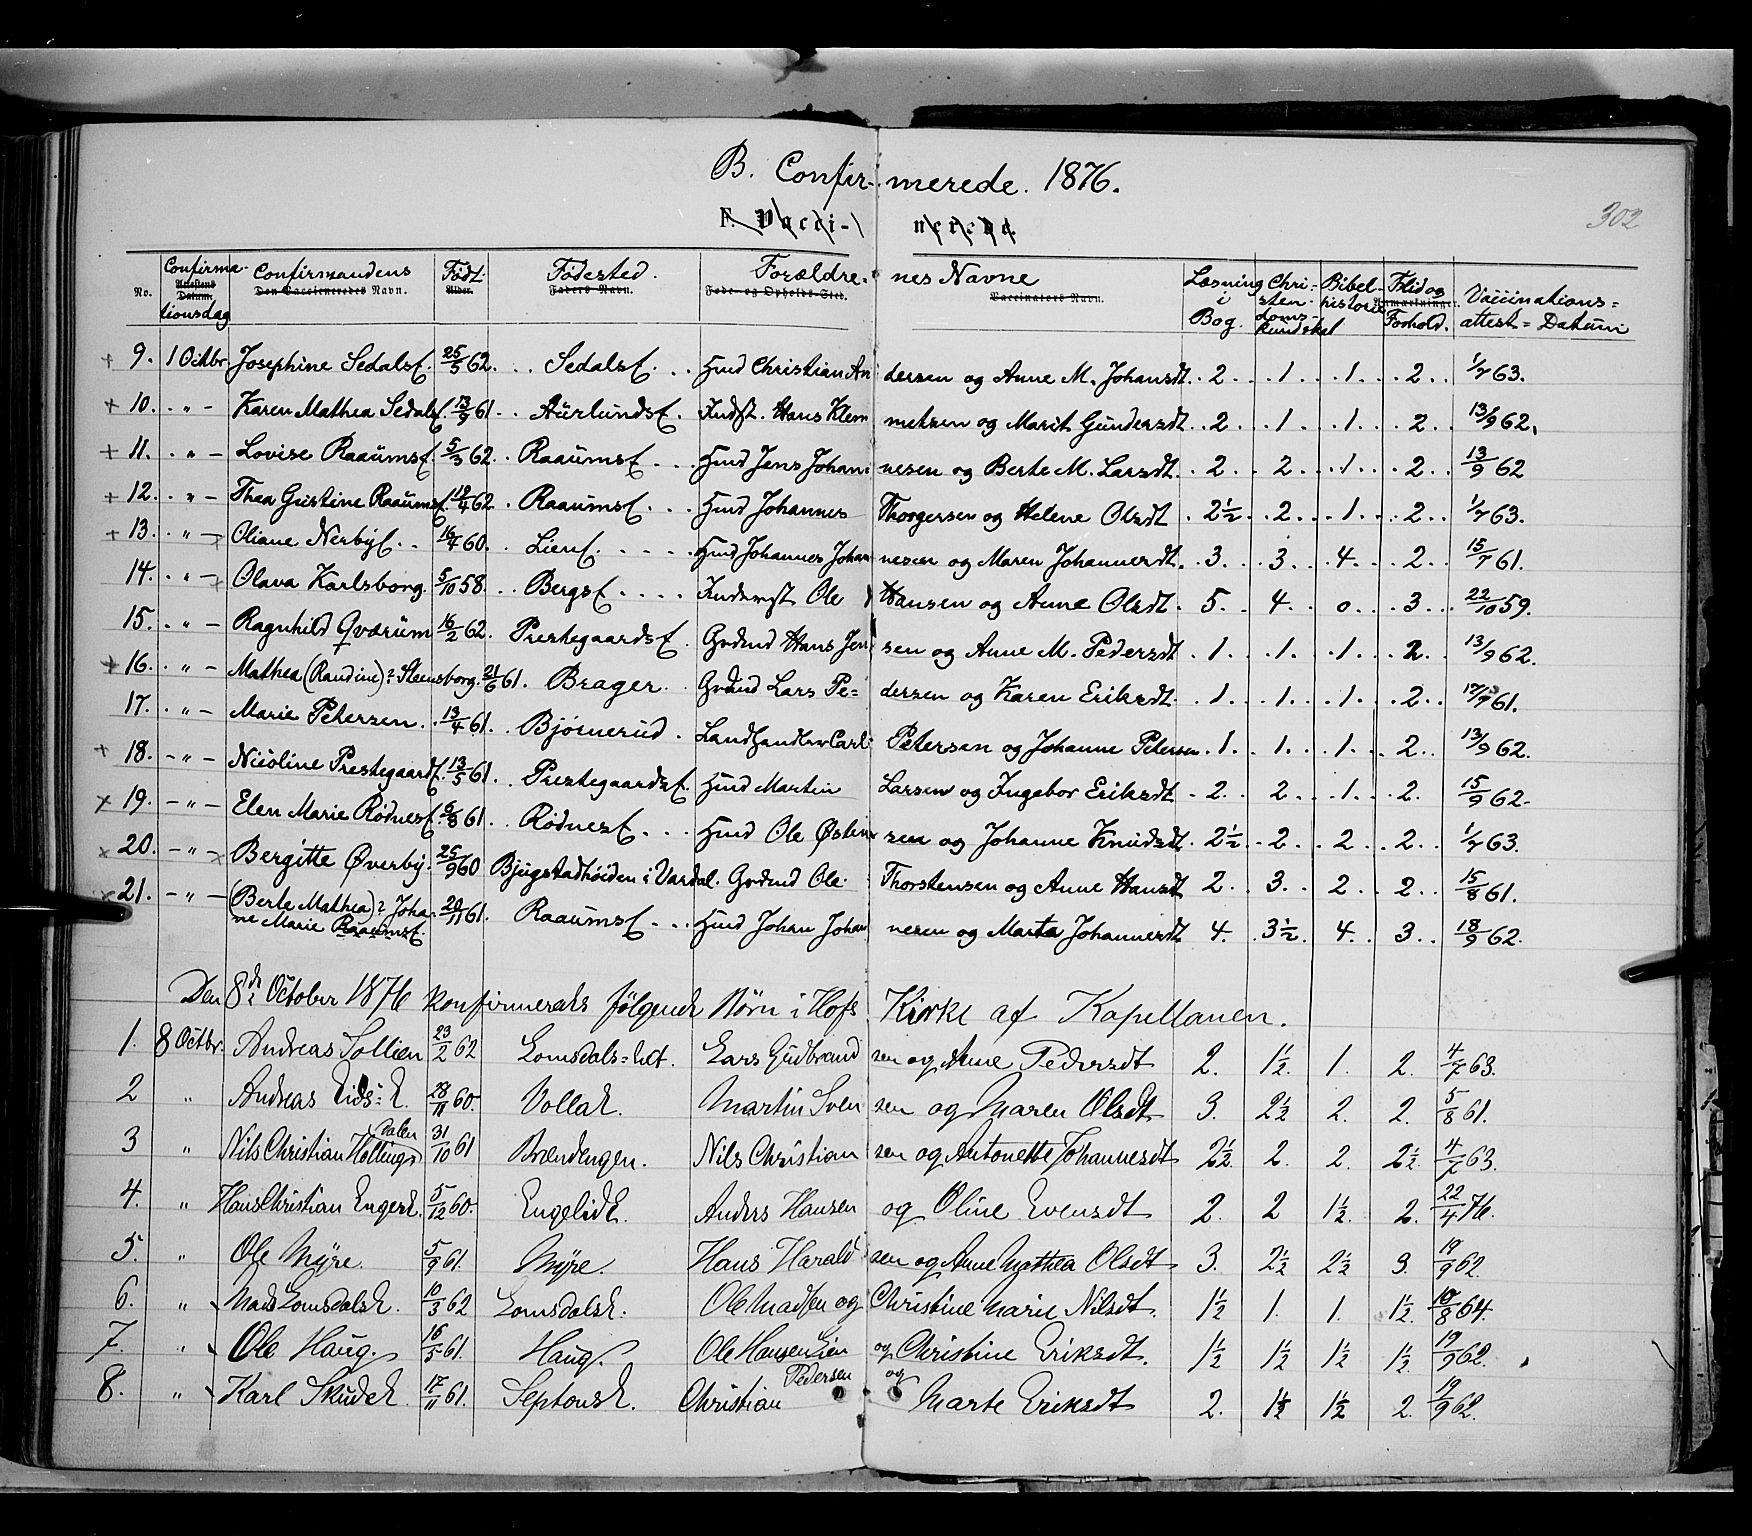 B. Confir- merede. 1876.
F. Vacci- nerede.
302
No. Confirma- Attestens Datum. tionsdag Confirmandens Den Vaccineredes Navn. Født. Alder. Fødested. Faders Navn. Forældre- nes Navne Føde- og Opholds-Sted. Vaccinators Navn. Læsning i Bog. Christen- doms- kundskab Bibel- historie Flid og Anmærkninger. Forhold. Vaccinations- attest= Datum
9. 1 Octbr. Josephine Sedalsf. 25/5 62. Sedalsf. Hmd Christian An dersen og Anne M. Johansdt. 2. 1. 1. 2. 1/7 63.
10. " Karen Mathea Sedalsf. 13/9 61. Aurlundsf. Indst. Hans Klem metsen og Marit Gundersdt. 2. 1. 1. 2. 13/9 62.
11. " Lovise Raaumsf. 5/3 62. Raaumsf. Hmd Jens Johan nesen og Berte M. Larsdt. 2. 2. 1. 2. 13/9 62
12. " Thea Gustine Raaumsf. 19/4 62. Raaumsf. Hmd Johannes Thorgersen og Helene Olsdt. 2½. 2. 1. 2. 1/7 63.
13. " Oliane Nerbyf. 16/4 60. Lienf. Hmd Johannes Johan nesen og Maren Johannesdt. 3. 3. 4. 2. 15/7 61.
14. " Olava Karlsborg. 5/10 58. Bergsf. Inderst Ole Hansen og Anne Olsdt. 5. 4. 0. 3. 22/10 59.
15. " Ragnhild Qværum 16/2 62. Prestegaardsf. Grdmd Hans Jen sen og Anne M. Pedersdt. 1. 1. 1. 2. 13/9 62.
16. " Mathea (Randine)? Steensborg. 21/6 61. Brager. Grdmd Lars Pe= dersen og Karen Eriksdt. 1. 1. 1. 2. 61.
17. " Marie Petersen. 13/4 61. Bjørnerud. Landhandler Carl Petersen og Johanne Petersen. 1. 1. 1. 2. 13/9 62.
18. " Nicoline Prestegaardsf. 13/5 61. Prestegaardsf. Hmd Martin Larsen og Ingebor Eriksdt. 2. 2. 1. 2. 15/9 62.
19. " Elen Marie Rødnesf. 6/8 61. Rødnesf. Hmd Ole Østen sen og Johanne Knudsdt. 2½. 2. 2. 2. 1/7 63.
20. " Bergitte Øverby. 25/9 60 Bjugstadhøiden i Vardal. Grdmd Ole Thorstensen og Anne Hansdt 2. 3. 2. 2. 15/8 61.
21. " (Berte Mathea)? Joha- 20/11 61. Raaumsf. Hmd Johan Johan nesen og Marta Johannesdt. 4. 3½. 4. 3. 18/9 62.
ne Marie Raaumsf.
Den 8de October 1876 konfirmerades følgende Børn i Hofs Kirke af Kapellanen.
1. 8 Octbr. Andreas Sollien 23/2 62 Lomsdals=hdt. Lars Gudbrand sen og Anne Pedersdt 2. 1½. 1. 2. 4/7 63.
2 " Andreas Eids=E. 28/11 60. VollaE. Martin Sven sen og Maren Olsdt 3. 2½ 2. 2. 5/8 61.
dalen
3 " Nils Christian Hellings 31/10 61 Brændengen. Nils Christian sen og Antonette Johannesdt 2½. 2. 2. 2½. 4/7 63.
4. " Hans Christian EngerE. 5/12 60. EngelidE. Anders Hansen og Oline Evensdt 2. 2 1½. 2. 22/4 76.
5. " Ole Myre. 5/9 61. Myre. Hans Harald sen og Anne Mathea Olsdt 3. 2½ 2½ 3. 19/9 62.
6. " Mads LomsdalsE. 10/3 62 LomsdalsE. Ole Madsen og Christine Marie Nilsdt. 1½ 1. 1. 1½. 10/8 64.
7. " Ole Haug. 16/5 61. Haug. Ole Hansen Lien og Christine Eriksdt. 1½ 1½ 1½ 1½. 19/9 62.
Pedersen og
8. " Karl SkudeE. 17/11 61. SeptonsE. Christian Marte Eriksdt 2. 1½ 1½ 2. 19/9 62.